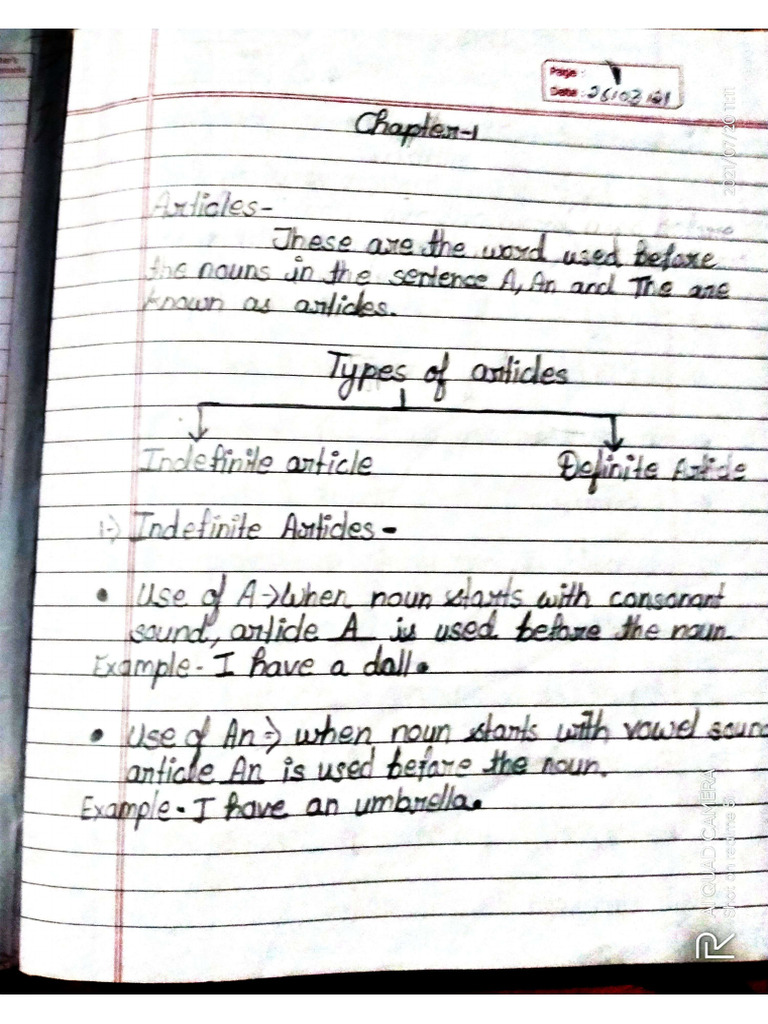 Page : 1
Date : 26/03/21
Chapter-1
Articles-
These are the word used before
the nouns in the sentence A, An and The are
known as articles.
Types of articles
Indefinite article Definite Article
1-) Indefinite Articles-
• Use of A-> When noun starts with consonant
sound, article A is used before the noun.
Example- I have a doll.
• Use of An=> when noun starts with vowel sound
article An is used before the noun.
Example- I have an umbrella.
2021/07/20 11:11
AI QUAD CAMERA
Shot on realme